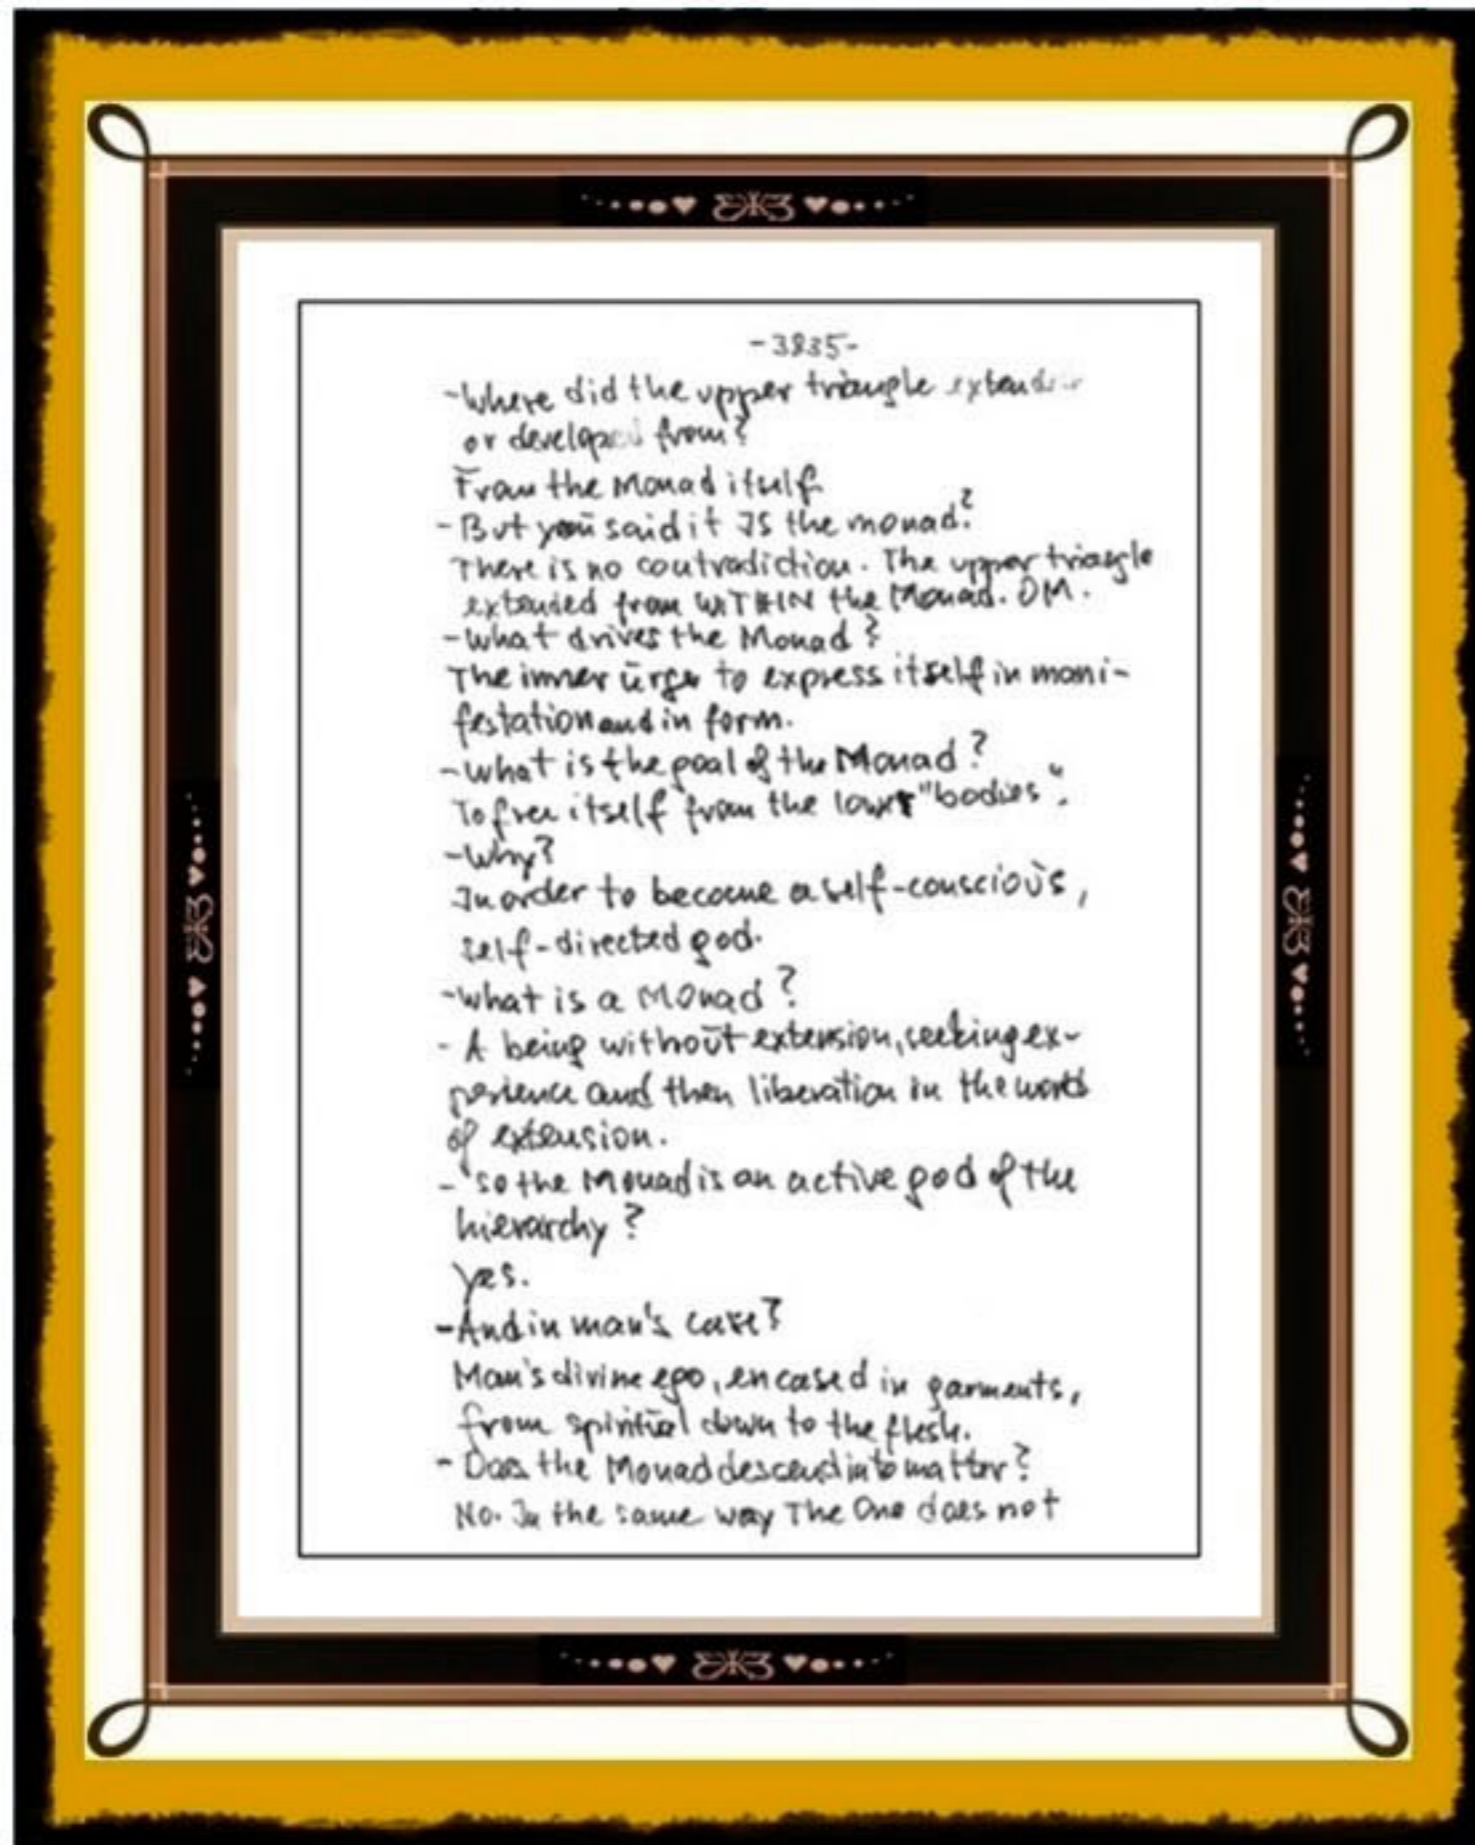 -3835-
-Where did the upper triangle extend
or developed from?
From the Monad itself
-But you said it IS the monad?
There is no contradiction. The upper triangle
extended from WITHIN the Monad. OM.
-What drives the Monad?
The inner urge to express itself in mani-
festation and in form.
-What is the goal of the Monad?
To free itself from the lower "bodies".
-Why?
In order to become a self-conscious,
self-directed god.
-What is a Monad?
- A being without extension, seeking ex-
perience and then liberation in the world
of extension.
- So the Monad is an active god of the
hierarchy?
Yes.
-And in man's case?
Man's divine ego, encased in garments,
from spiritual down to the flesh.
- Does the Monad descend into matter?
No. In the same way The One does not